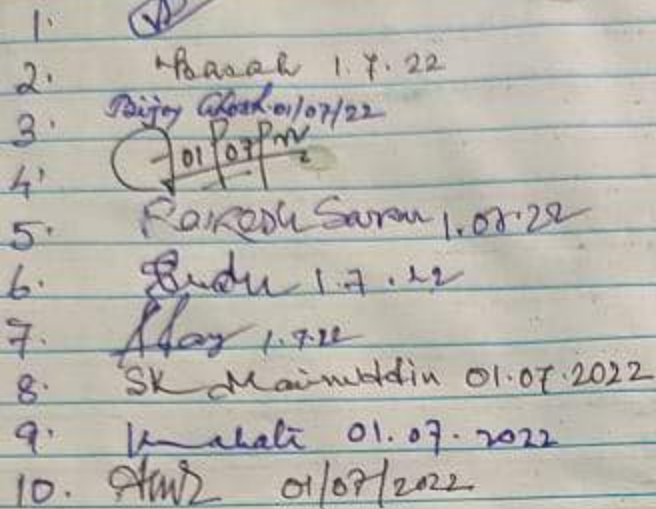 1.
2. Basak 1.7.22
3. Bijoy Ghosh 01/07/22
4. 01/07/22
5. Rakesh Saren 1.07.22
6. 1.7.22
7. 1.7.22
8. SK Mainuddin 01.07.2022
9. 01.07.2022
10. 01/07/2022